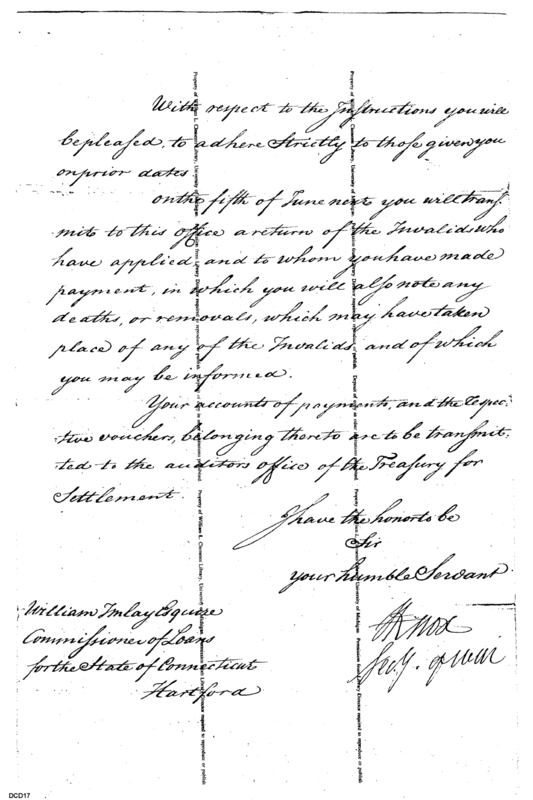 With respect to the Instructions you will
be pleased, to adhere Strictly to those given you
on prior dates
on the fifth of June next you will trans-
mit to this office a return of the Invalids who
have applied, and to whom you have made
payment, in which you will also note any
deaths, or removals, which may have taken
place of any of the Invalids, and of which
you may be informed.
Your accounts of payments, and the respec-
tive vouchers, belonging thereto are to be transmit-
ted to the auditors office of the Treasury for
Settlement.
I have the honor to be
Sir
your humble Servant
HKnox
Secy. of war
William Imlay Esquire
Commissioner of Loans
for the State of Connecticut
Hartford
DCD17